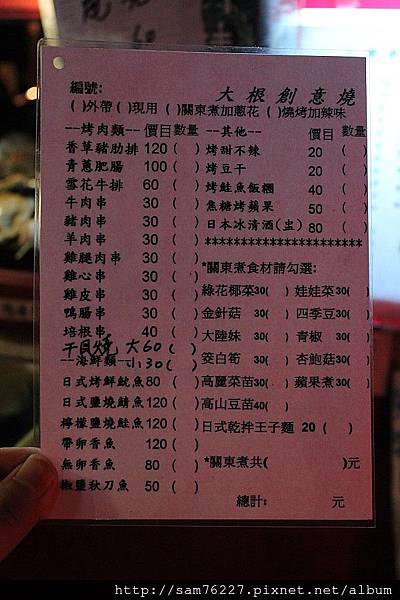 編號:
大根創意燒
( )外帶 ( )現用 ( )關東煮加蔥花 ( )燒烤加辣味
---烤肉類---價目數量
香草豬肋排 120 ( )
青蔥肥腸 100 ( )
雪花牛排 60 ( )
牛肉串 30 ( )
豬肉串 30 ( )
羊肉串 30 ( )
雞腿肉串 30 ( )
雞心串 30 ( )
雞皮串 30 ( )
鴨腸串 30 ( )
培根串 40 ( )
干貝燒 大60 ( )
小30 ( )
---海鮮類---
日式烤鮮魷魚80 ( )
日式鹽燒鯖魚120 ( )
檸檬鹽燒鮭魚120 ( )
帶卵香魚 120( )
無卵香魚 80 ( )
椒鹽秋刀魚 50 ( )
---其他--- 價目 數量
烤甜不辣 20 ( )
烤豆干 20 ( )
烤鮭魚飯糰 40 ( )
焦糖烤蘋果 50 ( )
日本冰清酒(盅) 80 ( )
**********************
*關東煮食材請勾選:
綠花椰菜30( ) 娃娃菜30( )
金針菇 30( ) 四季豆30( )
大陸妹 30( ) 青椒 30( )
筊白筍 30( ) 杏鮑菇30( )
高麗菜苗30( ) 蘋果煮30( )
高山豆苗40( )
日式乾拌王子麵 20 ( )
*關東煮共( )元
總計: 元
http://sam76227.pixnet.net/album